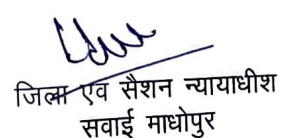 जिला एवं सैशन न्यायाधीश
सवाई माधोपुर